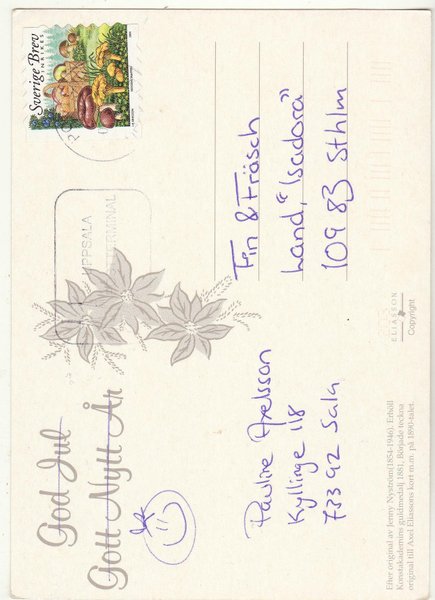 God Jul
Gott Nytt År
Pauline Axelsson
Kyllinge 118
733 92 Sala
Efter original av Jenny Nyström(1854-1946). Erhöll
Konstakademins guldmedalj 1881. Började teckna
original till Axel Eliassons kort en.m. på 1890-talet.
ELIASSON
Copyright
UPPSALA
TERMINAL
Sverige Brev
INRIKES
Fin & Fräsch
Land, "Isadora"
109 83 Sthlm